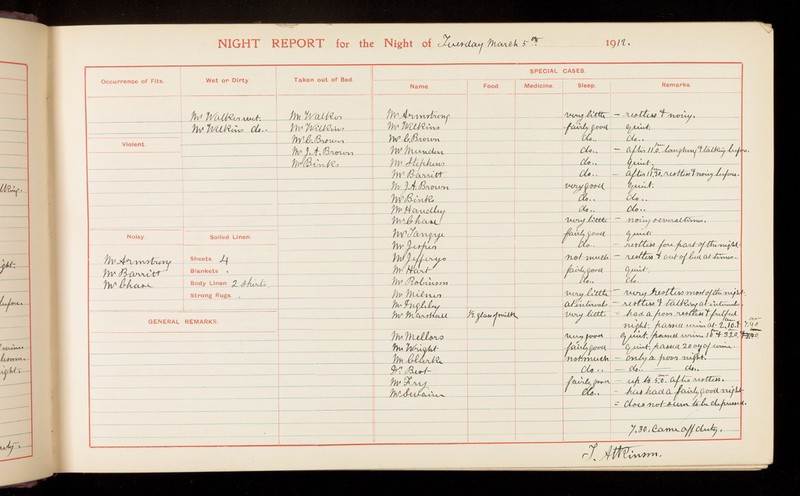 NIGHT REPORT for the Night of Tuesday March 5th 1912.
SPECIAL CASES.
Occurrence of Fits. Wet or Dirty. Taken out of Bed. Name. Food. Medicine. Sleep. Remarks.
Mr Walker wet. Mr Walker Mr Armstrong very little - restless & noisy.
Mr Wilkins do.. Mr Wilkins Mr Wilkins fairly good quiet.
Violent. Mr C. Brown Mr C. Brown do.. do..
Mr J. A. Brown Mr Munden do.. - after 11 laughing & talking before.
Mr Binks Mr Stephens do.. quiet.
Mr Barritt do.. - after 11.30, restless & noisy before.
Mr J. A. Brown very good quiet.
Mr Binks do.. do..
Mr Handley do.. do..
Mr Chase very little - noisy several times.
Noisy. Soiled Linen. Mr Tangye fairly good quiet.
Mr Jesper do.. - restless for part of the night
Mr Armstrong Sheets. 4 Mr Jefferys not much - restless & out of bed at times.
Mr Barritt Blankets Mr Hart fairly good quiet.
Mr Chase Body Linen 2 Shirts Mr Robinson do.. do.
Strong Rugs. Mr Milnes very little - very restless most of the night.
Mr Inglilby at intervals - restless & talking at intervals
GENERAL REMARKS. Mr Marshall ½ glass of milk very little - had a poor restless & fretful
night: passed urine at 2.10. & 7.40
Mr Mellors very good quiet, passed urine
Mr Wright fairly good quiet, passed 20 oz of urine.
Mr Clarke not much - only a poor night.
do.. - do.. do..
Mr Fry fairly good - up to 5.0. after restless.
do.. - has had a fairly good night
= does not seem to be depressed.
7.30. Came off duty.
J. Atkinson.